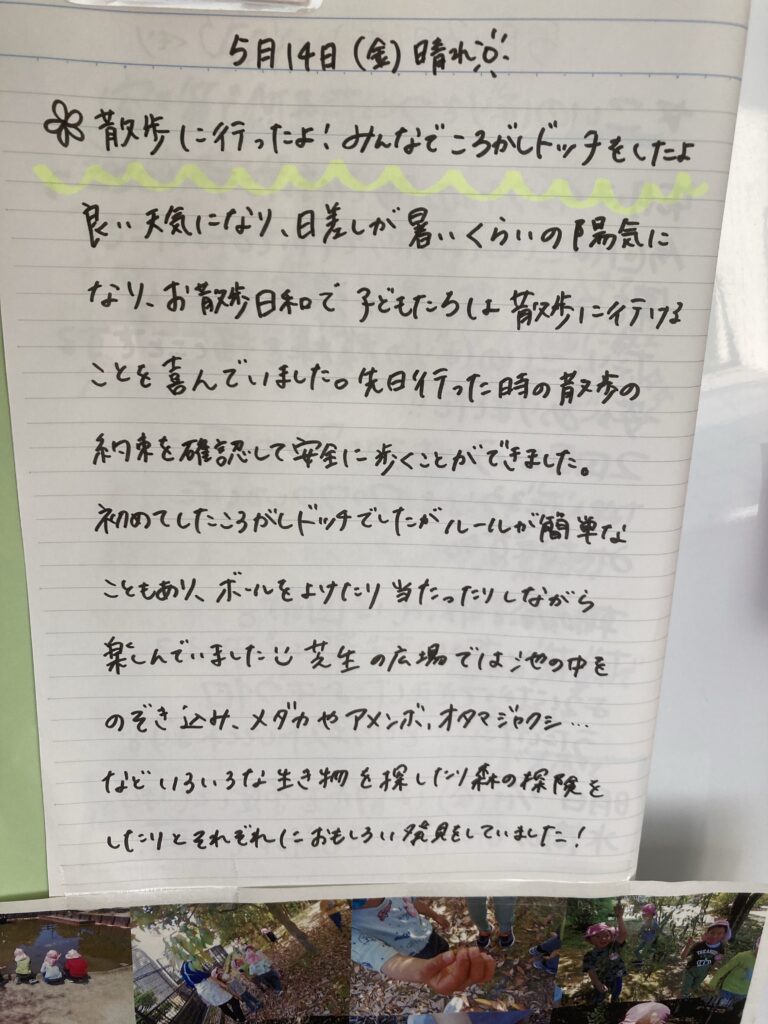 5月14日(金)晴れ
散歩に行ったよ!みんなでころがしドッチをしたよ
良い天気になり、日差しが暑いくらいの陽気に
なり、お散歩日和で子どもたちは散歩に行ける
ことを喜んでいました。先日行った時の散歩の
約束を確認して安全に歩くことができました。
初めてしたころがしドッチでしたがルールが簡単な
こともあり、ボールをよけたり当たったりしながら
楽しんでいました 芝生の広場では池の中を
のぞき込み、メダカやアメンボ、オタマジャクシ…
などいろいろな生き物を探したり森の探険を
したりとそれぞれにおもしろい発見をしていました!